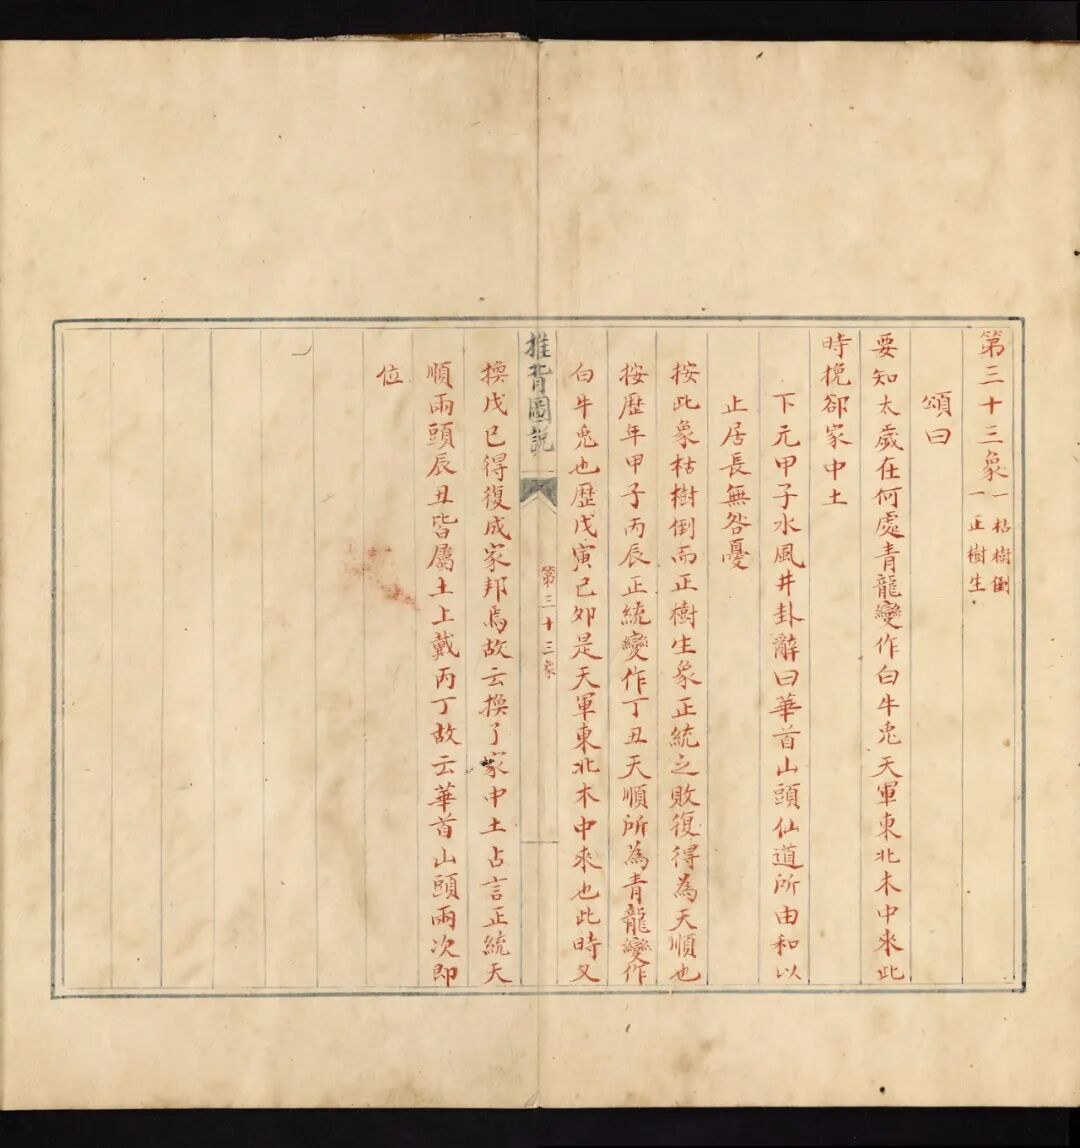 第三十三象一枯樹倒
一正樹生
頌曰
要知太歲在何處青龍變作白牛兎天軍東北木中來此
時挽卻家中土
下元甲子水風井卦辭曰華首山頭仙道所由和以
止居長無咎憂
按此象枯樹倒而正樹生象正統之敗復得為天順也
按歷年甲子丙辰正統變作丁丑天順所為青龍變作
白牛兎也歷戊寅己卯是天軍東北木中來也此時又
推背圖說
第三十三象
換戊己得復成家邦焉故云換了家中土占言正統天
順兩頭辰丑皆屬土上戴丙丁故云華首山頭兩次即
位